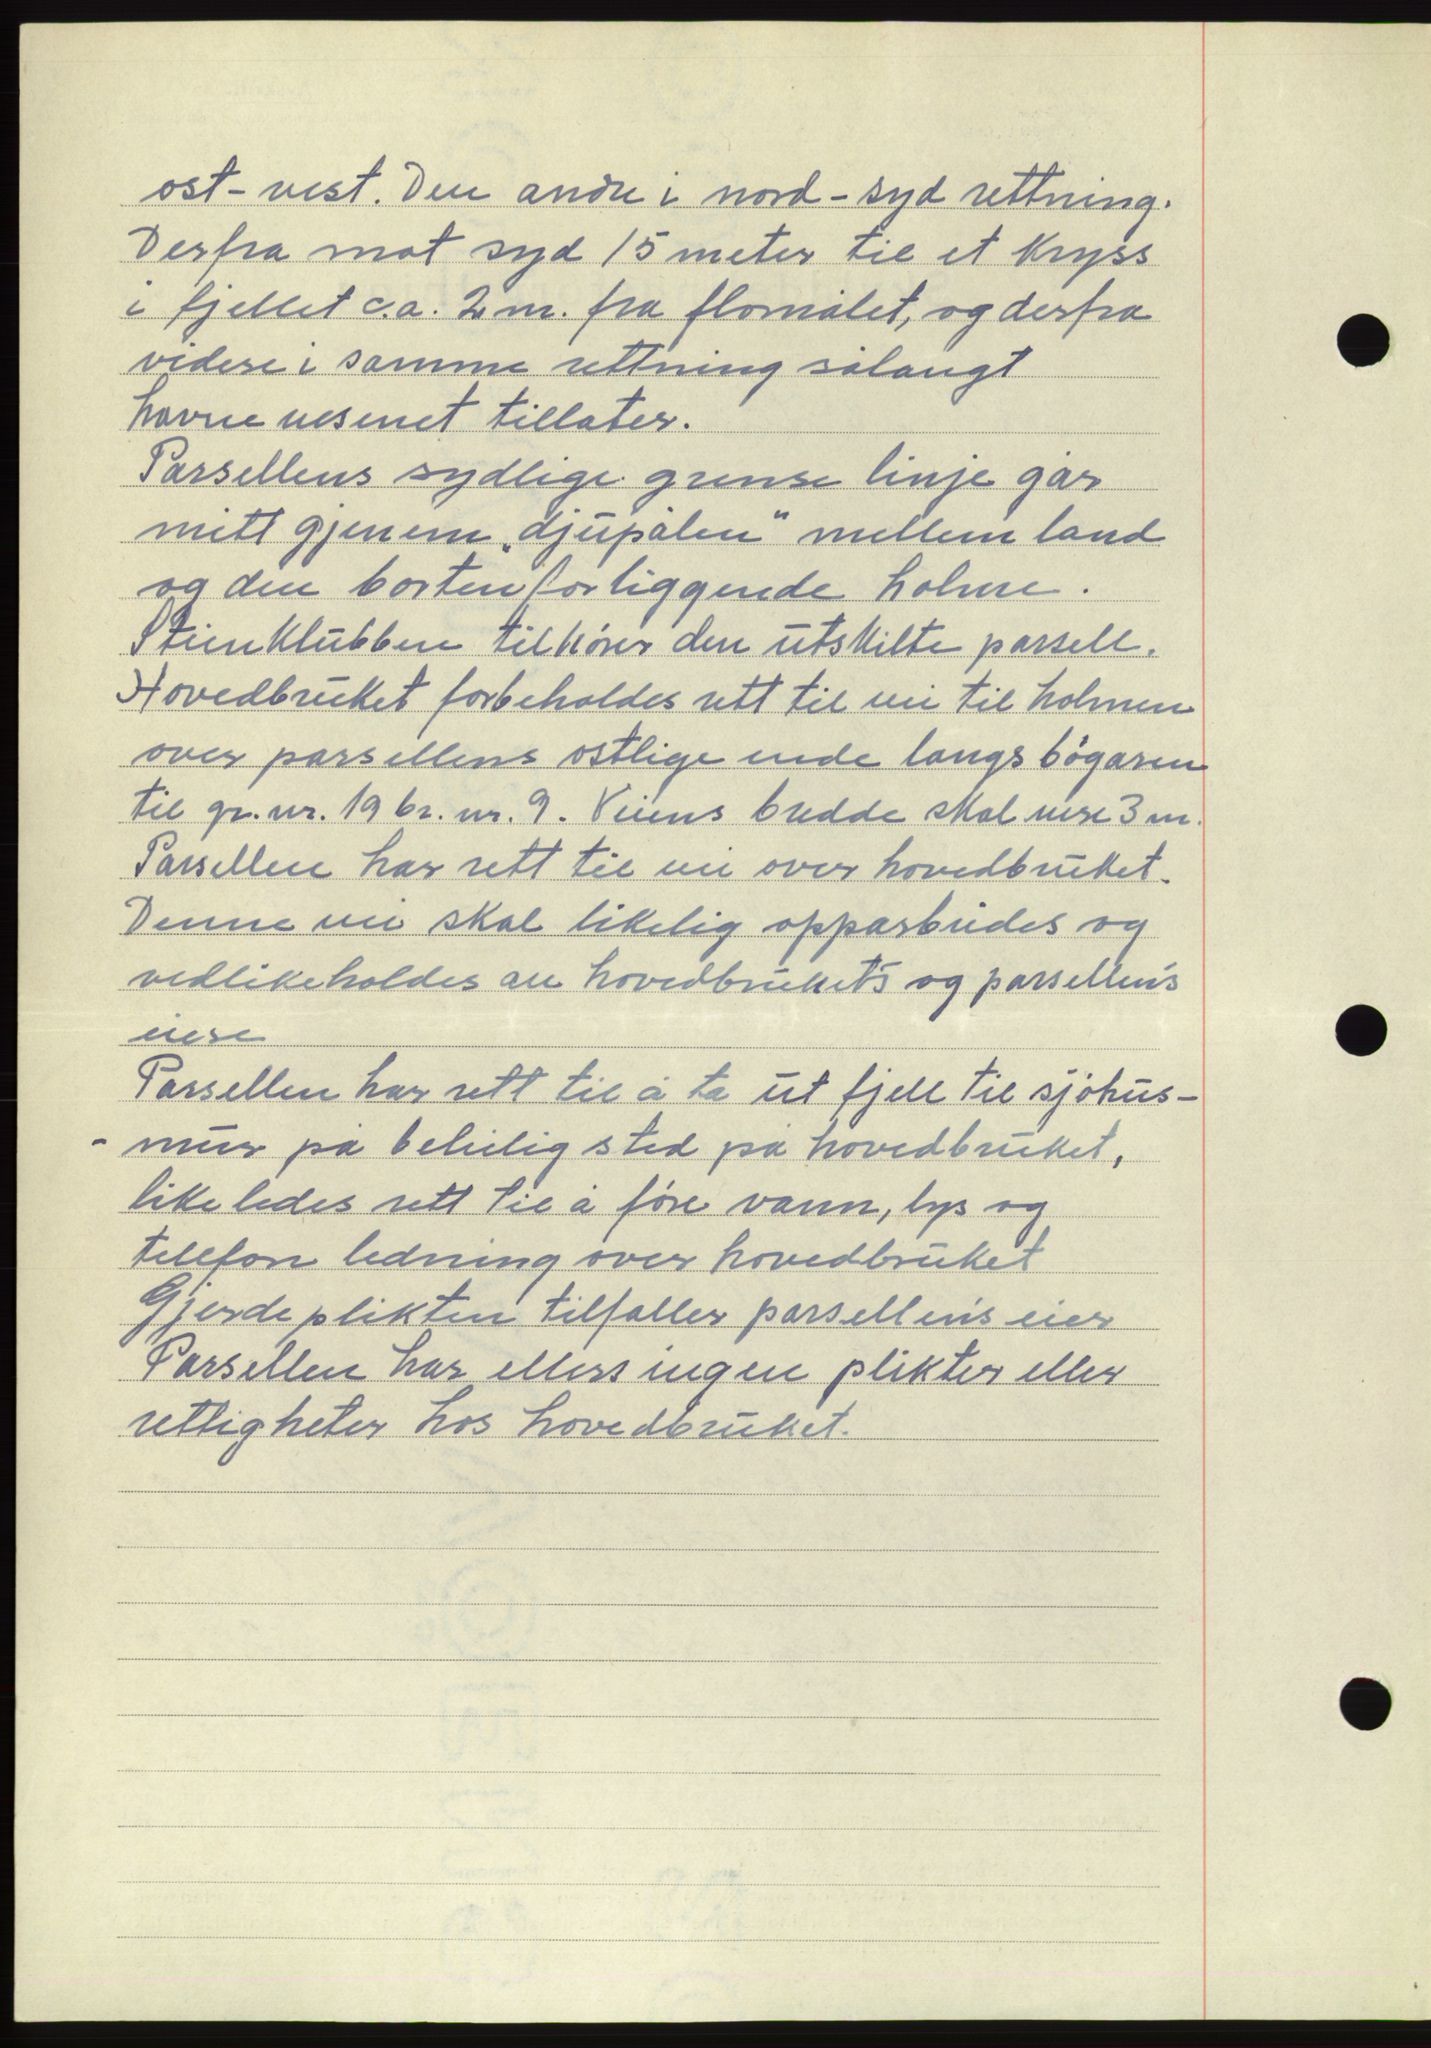 ost-vest. Den andre i nord-syd rettning.
Derfra mot syd 15 meter til et kryss
i fjellet c.a. 2 m. fra flomålet, og derfra
videre i samme rettning sålangt
havnevesenet tillater.
Parsellens sydlige grense linje går
mitt gjenem "djupålen" mellem land
og den bortenforliggende holme.
Steinklubben tilhörer den utskilte parsell.
Hovedbruket forbeholdes rett til vei til holmen
over parsellens ostlige ende langs bögaren
til gr. nr. 19 br. nr. 9. Veiens bredde skal vere 3 m.
Parsellen har rett til vei over hovedbruket.
Denne vei skal likelig opparbeides og
vedlikeholdes av hovedbrukets og parsellens
eiere
Parsellen har rett til å ta ut fjell til sjöhus-
-mur på beleilig sted på hovedbruket,
like ledes rett til å före vann, lys og
telefon ledning over hovedbruket
Gjerde plikten tilfaller parsellens eier
Parsellen har ellers ingen plikter eller
rettigheter hos hovedbruket.